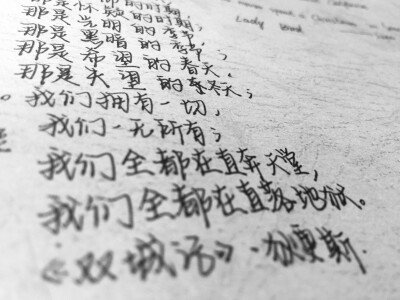 那是怀疑的时期；
那是光明的季节，
那是黑暗的季节；
那是希望的春天，
那是失望的冬天；
。我们拥有一切，
我们一无所有；
我们全都在直奔天堂，
我们全都在直落地狱。
《双城记》-狄更斯.
Lady Bird